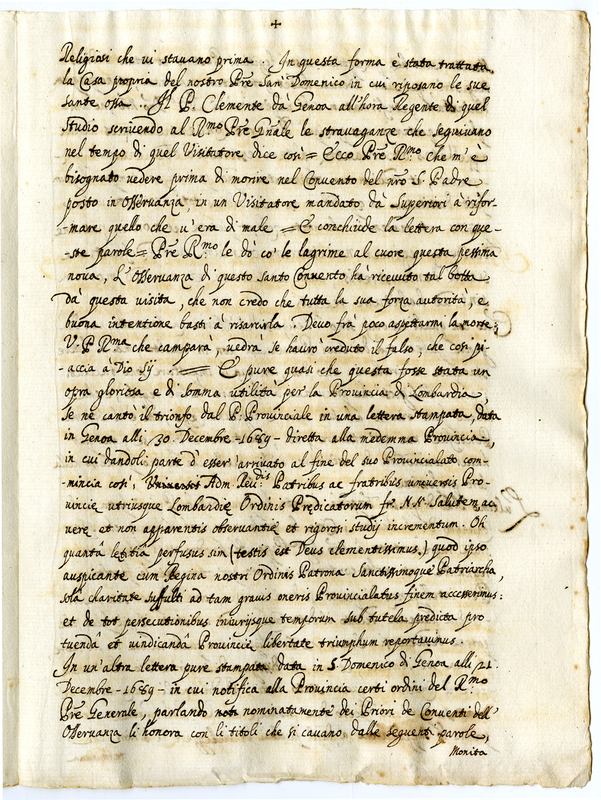 +
Religiosi che vi stavano prima. In questa forma è stata trattata
la Casa propria del nostro Pre San Domenico in cui riposano le sue
sante ossa. Il P. Clemente dà Genoa all'hora Regente di quel
Studio scrivendo al Rmo Pre Gnale le stravaganze che seguivano
nel tempo di quel Visitatore dice così = Ecco Pre Rmo che m'è
bisognato vedere prima di morire nel Convento del nro S. Padre
posto in Osservanza, in un Visitatore mandato dà Superiori à rifor-
-mare quello che v'era di male = E conchiude la lettera con que-
-ste parole = Pre Rmo le dò co' le lagrime al cuore questa pessima
nova, L'Osservanza di questo santo Convento hà ricevuto tal botta
dà questa visita, che non credo che tutta la sua forza autorità, e
buona intentione basti à risarvirla. Devo frà poco aspettarmi la morte:
V. P. Rma che camparà, vedrà se haurò creduto il falso, che così pi-
-accia à Dio sij. = E pure quasi che questa fosse stata un
opra gloriosa e di somma utilità per la Provincia di Lombardia
se ne cantò il trionfo dal P. Provinciale in una lettera stampata, data
in Genoa alli 30 Decembre - 1689 - diretta alla medemma Provincia,
in cui dandoli parte d'esser arrivato al fine del suo Provincialato com-
-mincia così, Adm Reudis Patribus ac fratribus universis Pro-
vincie utriusque Lombardie Ordinis Predicatorum fr. N. N. Salutem, ac
vere et non apparentis observantie et rigorosi studij incrementum. Oh
quantâ letitia perfusus sim (testis est Deus clementissimus,) quod ipso
auspicante cum Regina nostri Ordinis Patrona Sanctissimoque Patriarcha,
solâ charitate suffulti ad tam gravis oneris Provincialatus finem accesserimus:
et de tot persecutionibus iniurijsque temporum sub tutela predicta pro
tuendâ et vindicandâ Provincie libertate triumphum reportavimus.
In un'altra lettera pure stampata data in S. Domenico di Genoa alli 21
Decembre - 1689 - in cui notifica alla Provincia certi ordini del Rmo
Pre Generale, parlando nominatamente dei Priori de Conventi dell'
Osservanza li honora con li titoli che si cavano dalle seguenti parole,
Monita